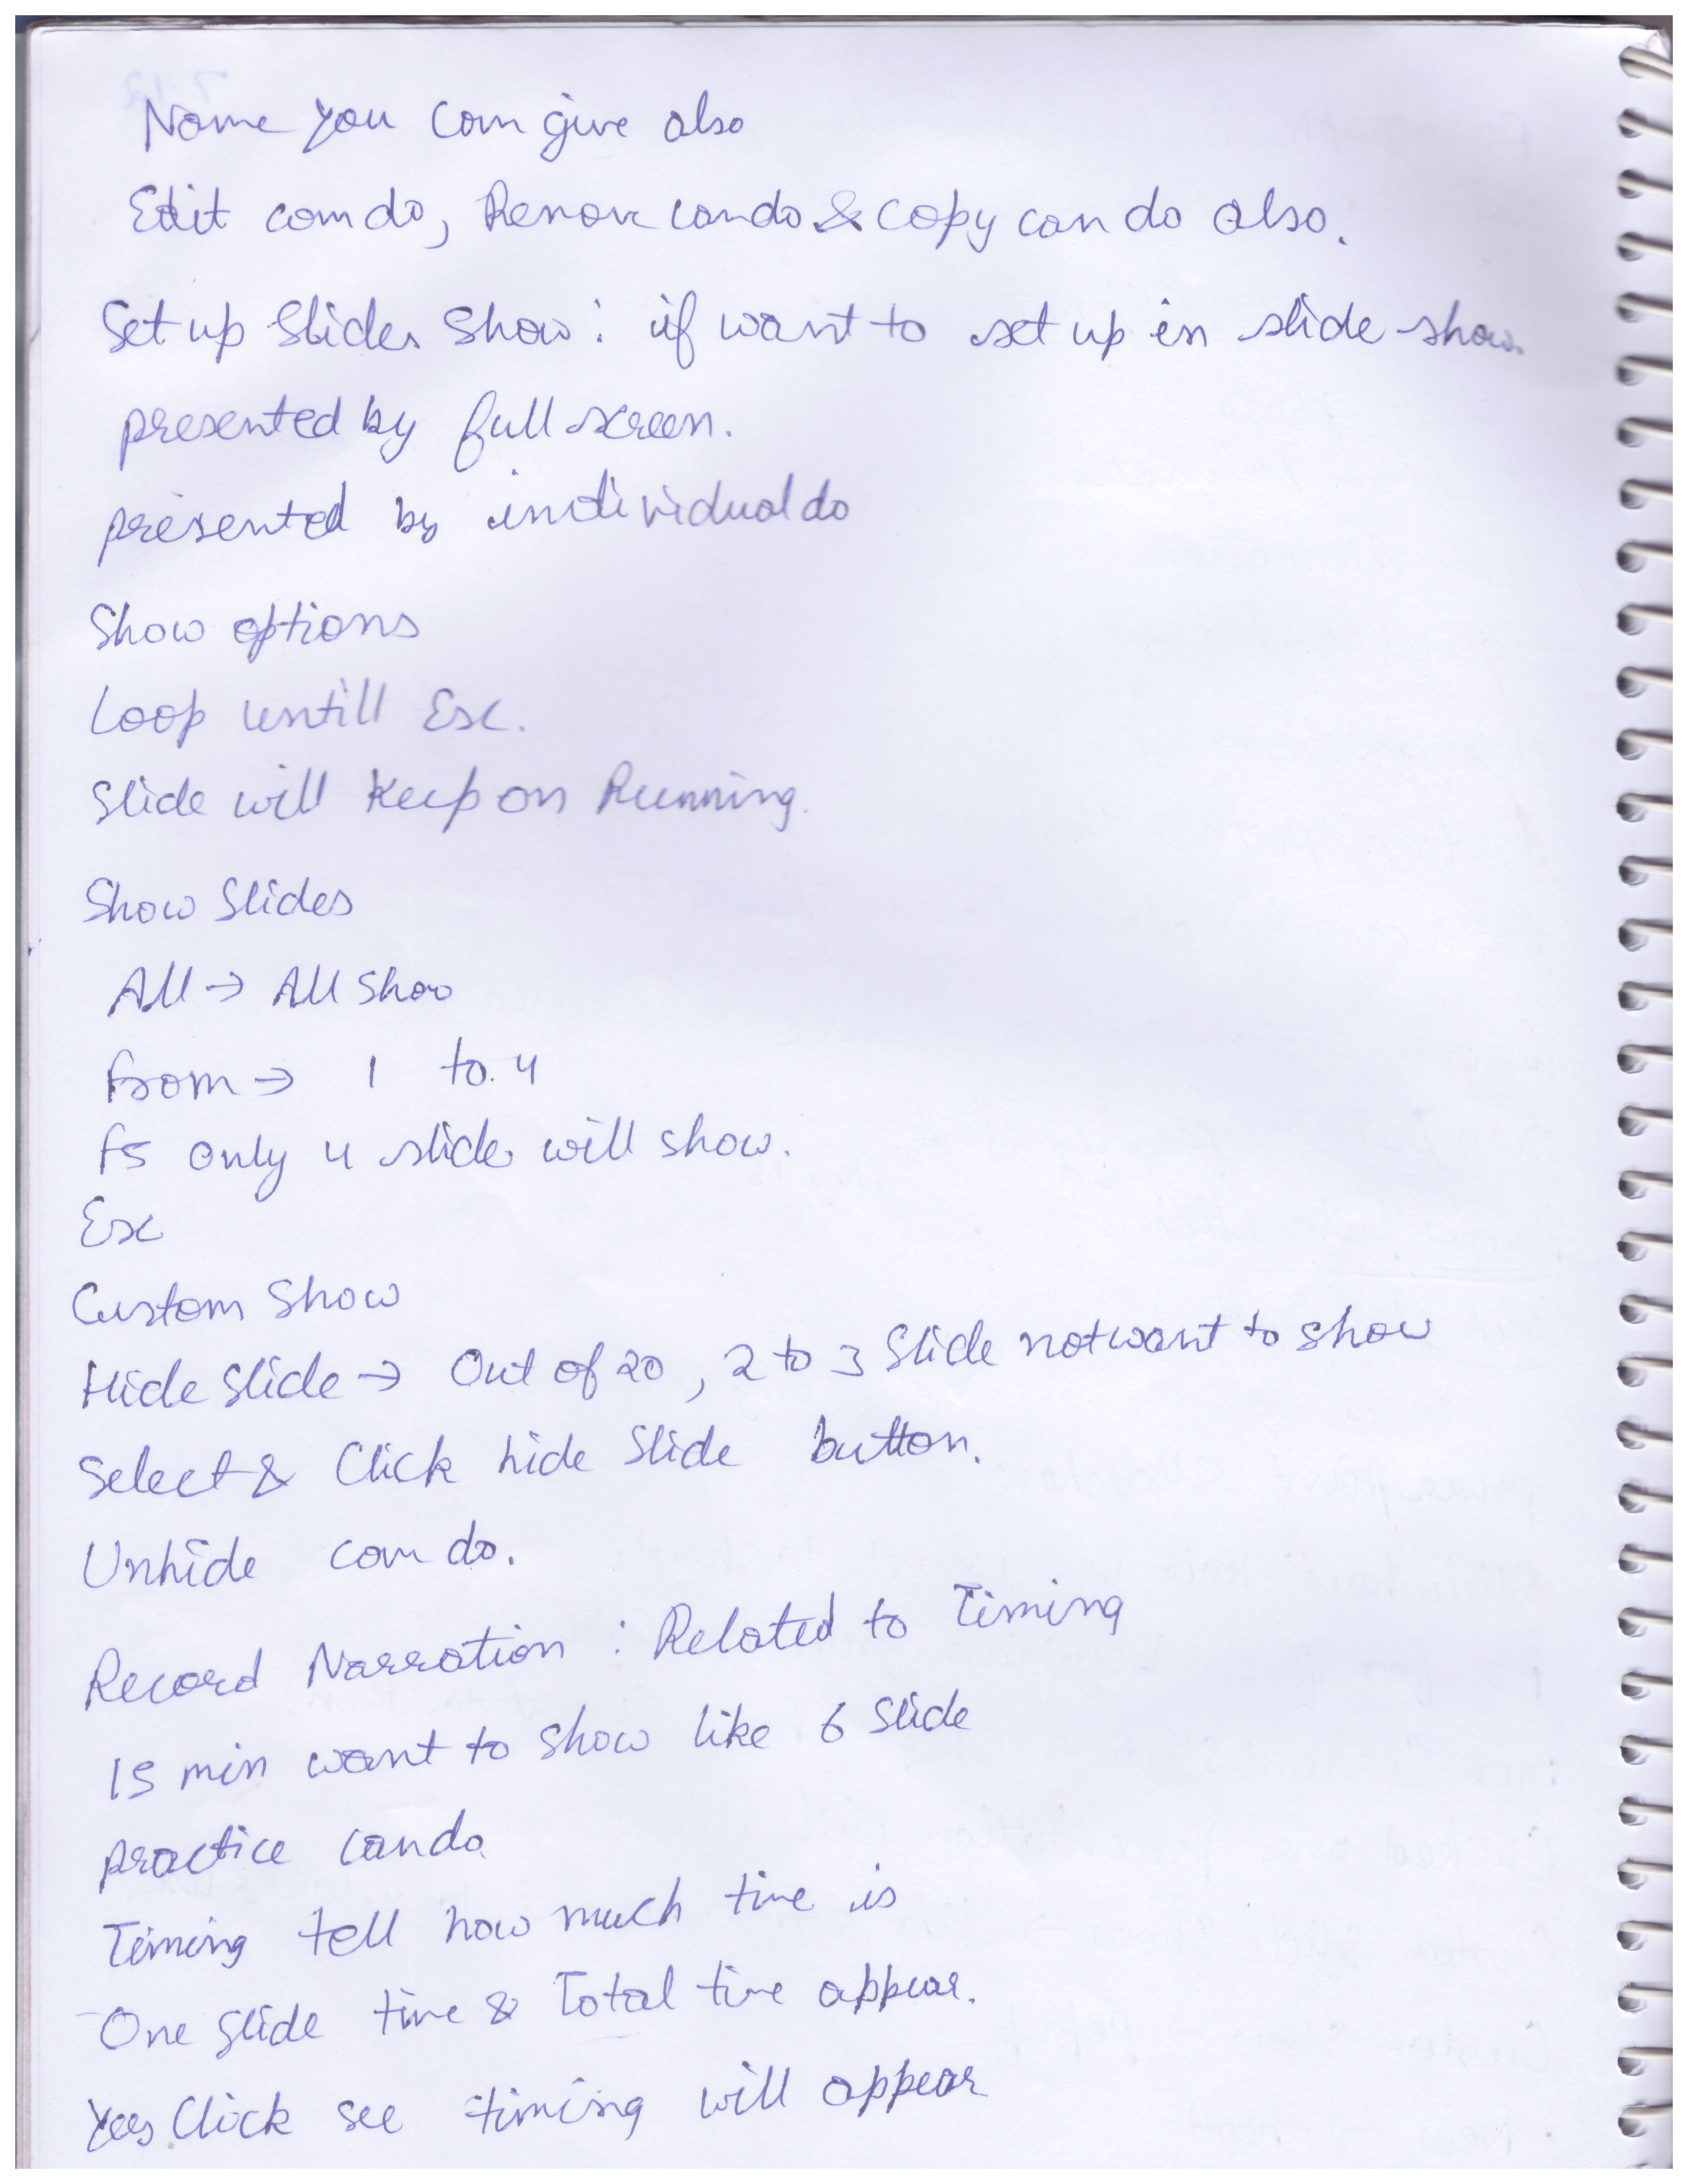 Name you can give also
Edit can do, Remove can do & copy can do also.
Set up Slides Show : if want to set up in slide show.
presented by full screen.
presented by individual do
Show options
Loop untill Esc.
Slide will keep on Running.
Show Slides
All → All Show
from → 1 to. 4
f5 only 4 slide will show.
Esc
Custom Show
Hide Slide → Out of 20, 2 to 3 Slide not want to show
Select & Click hide Slide button.
Unhide can do.
Record Narration : Related to Timing
15 min want to show like 6 slide
practice can do.
Timing tell how much time is
One slide time & Total time appear.
Yes Click see timing will appear